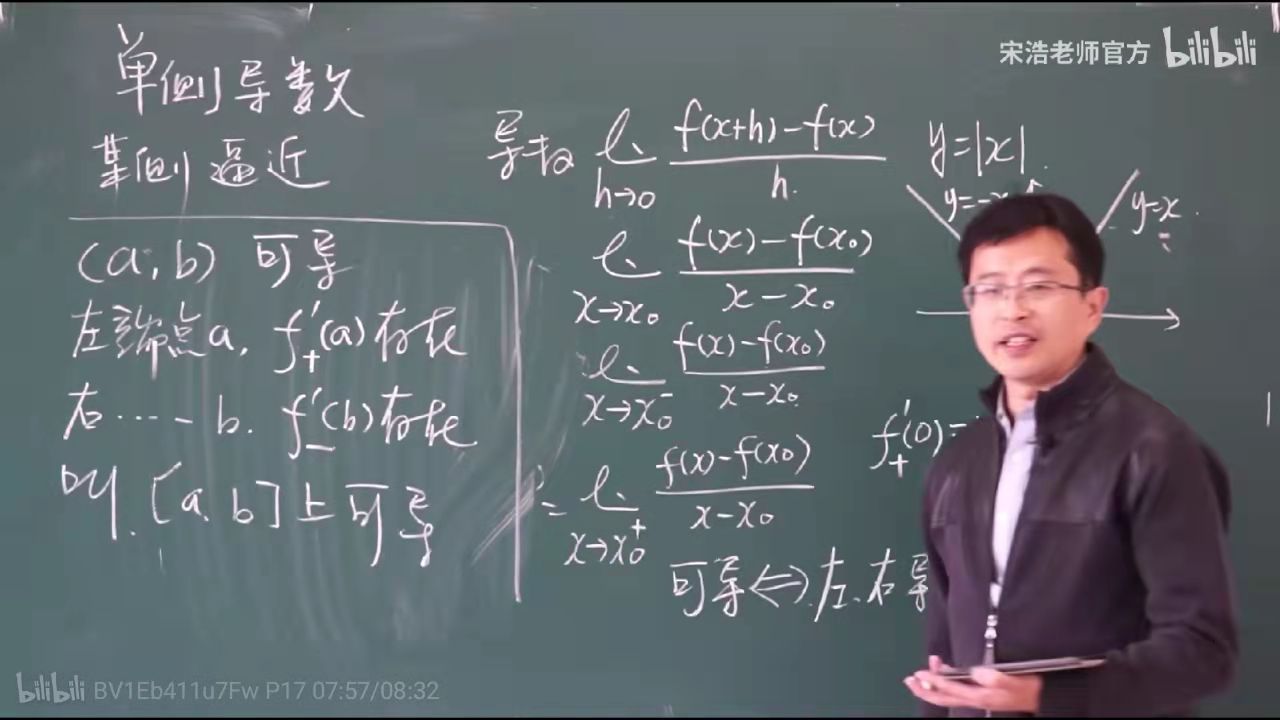 宋浩老师官方 bilibili
单侧导数
某侧逼近
(a,b) 可导
左端点a, f₊′(a)存在
右…… b. f₋′(b)存在
叫. [a,b]上可导
导数 l. h→0 f(x+h)-f(x) / h.
l. x→x₀ f(x)-f(x₀) / x-x₀
l. x→x₀⁻ f(x)-f(x₀) / x-x₀
= l. x→x₀⁺ f(x)-f(x₀) / x-x₀
可导⇔左、右导
y=|x|.
y=-x
y=x.
f₊′(0)=
bilibili BV1Eb411u7Fw P17 07:57/08:32